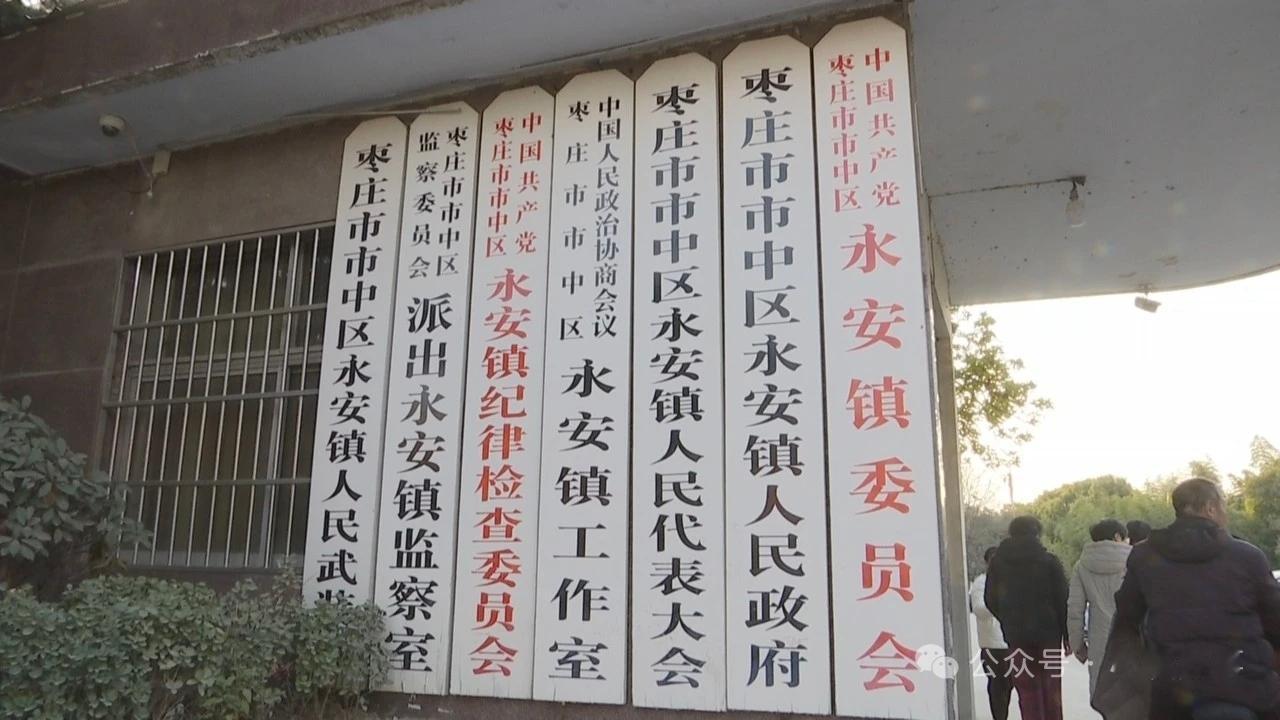 中国共产党
枣庄市市中区
永安镇委员会
枣庄市市中区永安镇人民政府
枣庄市市中区永安镇人民代表大会
中国人民政治协商会议
枣庄市市中区
永安镇工作室
中国共产党
枣庄市市中区
永安镇纪律检查委员会
枣庄市市中区
监察委员会
派出永安镇监察室
枣庄市市中区永安镇人民武
公众号